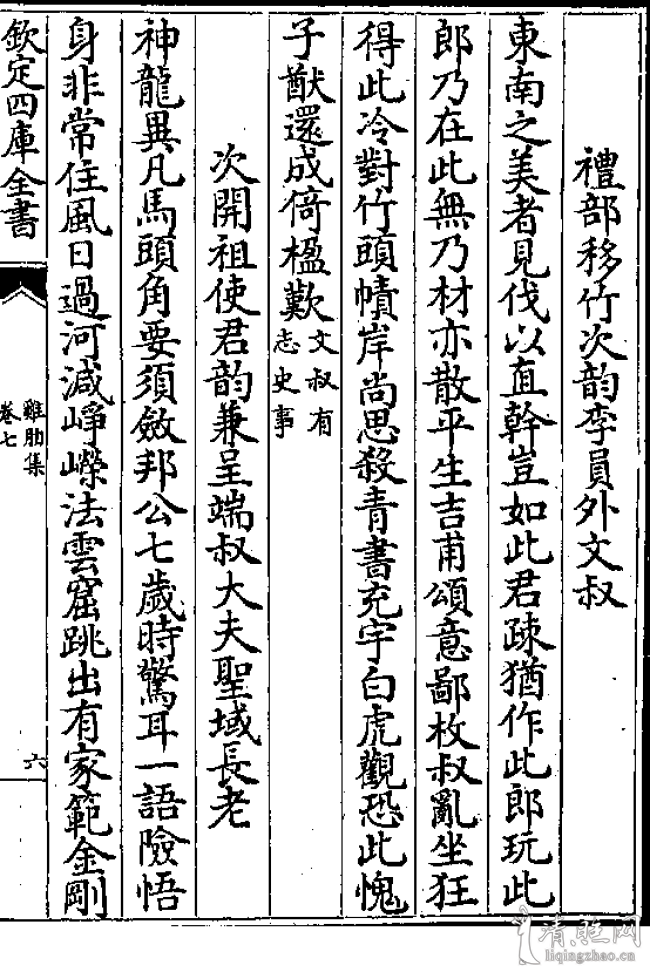 禮部移竹次韵李員外文叔
東南之美者見伐以直幹豈如此君疎猶作此郎玩此
郎乃在此無乃材亦散平生吉甫頌意鄙枚叔亂坐狂
得此冷對竹頭幘岸尚思殺青書充宇白虎觀恐此愧
子猷還成倚楹歎文叔有
志史事
次開祖使君韵兼呈端叔大夫聖域長老
神龍異凡馬頭角要須斂邦公七歲時驚耳一語險悟
身非常住風日過河減崢嶸法雲窟跳出有家範金剛
欽定四庫全書
雞肋集
卷七
六
清照网
liqingzhao.cn